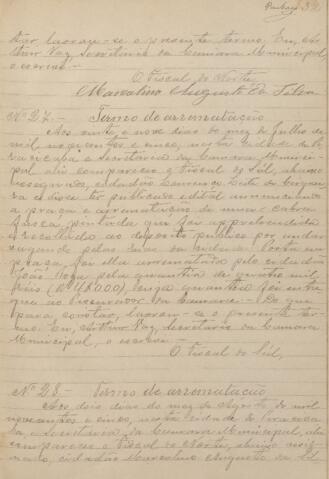 tar lavrou-se o presente termo. Eu, Ar
thur Vaz, Secretario da Camara Municipal,
o escrevi.
O Fiscal do Norte,
Marcolino Augusto da Silva
Nº 27. - Termo de arrematação
Aos vinte e nove dias do mez de Julho de
mil novecentos e cinco, nesta cidade de Pi
racicaba e Secretaria da Camara Munici-
pal ahi compareceu o Fiscal do Sul, abaixo
assignado, cidadão Lourenço
e disse ter publicado edital annunciando
a praça e arrematação de uma cabra
que foi apprehendida
e recolhida ao deposito publico por andar
vagando pelas ruas da cidade. Posta em
praça, foi ella arrematada pelo cidadão
João pela quantia de quatro mil
réis (4$000), cuja quantia foi entre
gue ao Procurador da Camara. Do que
para constar, lavrou-se o presente ter-
mo. Eu, Arthur Vaz, Secretario da Camara
Municipal, o escrevi.
O Fiscal do Sul,
Nº 28 - Termo de arrematação
Aos dois dias do mez de Agosto de mil
novecentos e cinco, nesta cidade de Piracica
ba, e Secretaria da Camara Municipal, ahi
compareceu o Fiscal do Norte, abaixo assig-
nado, cidadão Marcolino Augusto da Sil